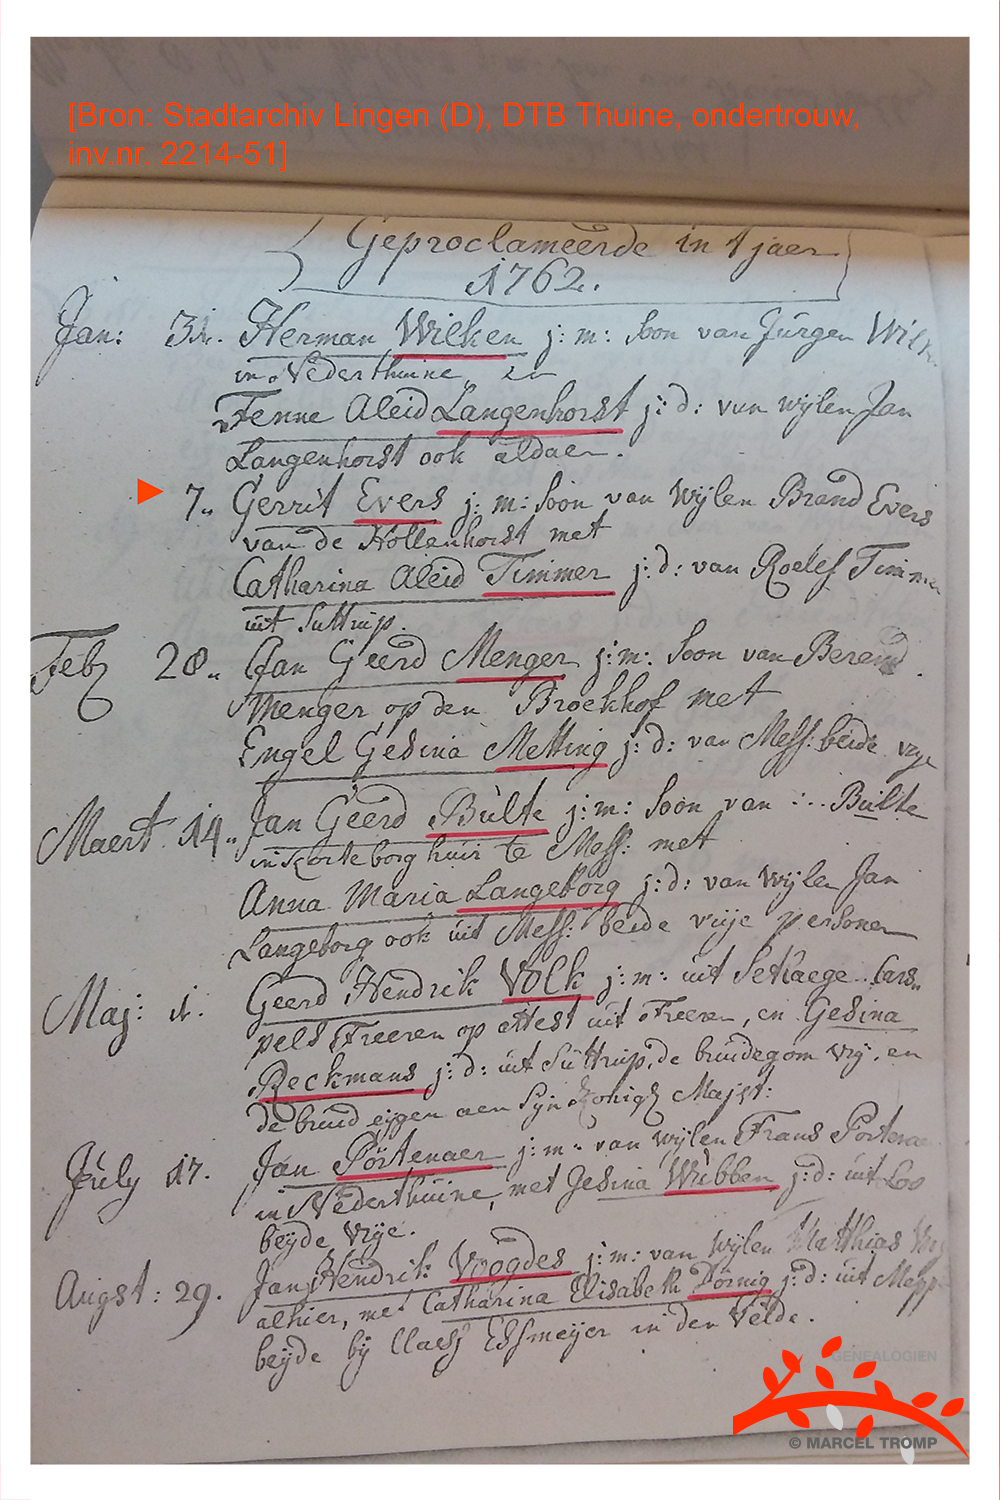 [Bron: Stadtarchiv Lingen (D), DTB Thuine, ondertrouw,
inv.nr. 2214-51]
Geproclameerde in 't jaer
1762.
Jan: 31. Herman Wilken j: m: Soon van Jürgen Wilk
in Nederthuine, en
Fenne Aleid Langenhorst j: d: van wijlen Jan
Langenhorst ook aldaer.
7. Gerrit Evers j: m: Soon van Wijlen Brand Evers
van de Hollenhorst met
Catharina Aleid Timmer j: d: van Roelef Timmer
uit Suttrup.
Feb 28. Jan Geerd Menger j: m: Soon van Berend
Menger op den Broekhof met
Engel Gesina Metting j: d: van Mess: beide vrye
Maert 14. Jan Geerd Bülte j: m: Soon van : .. Bülte
in Korteborg huir te Mess: met
Anna Maria Langeborg j: d: van Wijlen Jan
Langeborg ook uit Mess: beide vrije personen
Maj: 1. Geerd Hendrik Volk j: m: uit Setlaege Cars
pels Freeren op attest uit Freeren, en Gesina
Beckmans j: d: uit Suttrup, de bruidegom vrij, en
de bruid eijgen aen Sijn Konigl Majst:
July 17. Jan Pörtenaer j: m: van wijlen Frans Portenae
in Nederthuine, met Gesina Wübben j: d: uit Loo
beijde vrije.
Augst: 29. Jan Hendrik Voogdes j: m: van Wijlen Matthias
alhier, met Catharina Elisabeth Dörnig j: d: uit Mepp
beijde bij Claess Essmeijer in den Velde.
GENEALOGIEN
© MARCEL TROMP